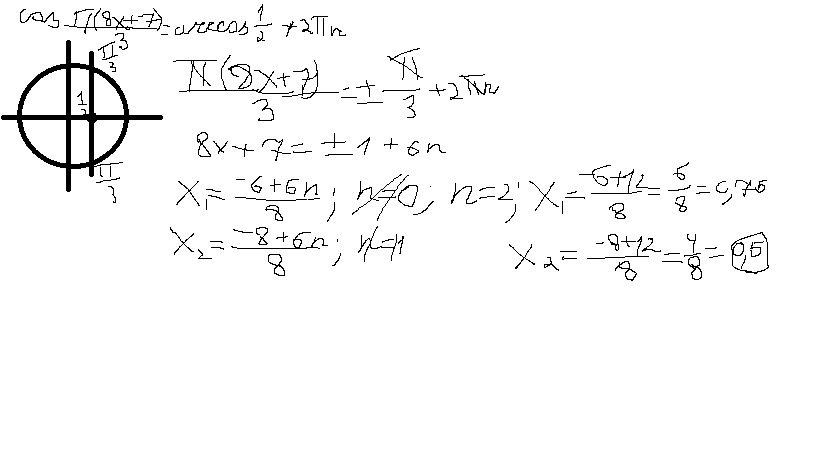 cos π(8x+7)/3 = arccos 1/2 + 2πn
π/3
1/2
π/3
π(8x+7)/3 = ± π/3 + 2πn
8x+7 = ±1 + 6n
X₁ = (-6+6n)/8 ; n≠0 ; n=2 ; X₁ = (-6+12)/8 = 6/8 = 0,75
X₂ = (-8+6n)/8 ; n=1
X₂ = (-8+12)/8 = 4/8 = 0,5